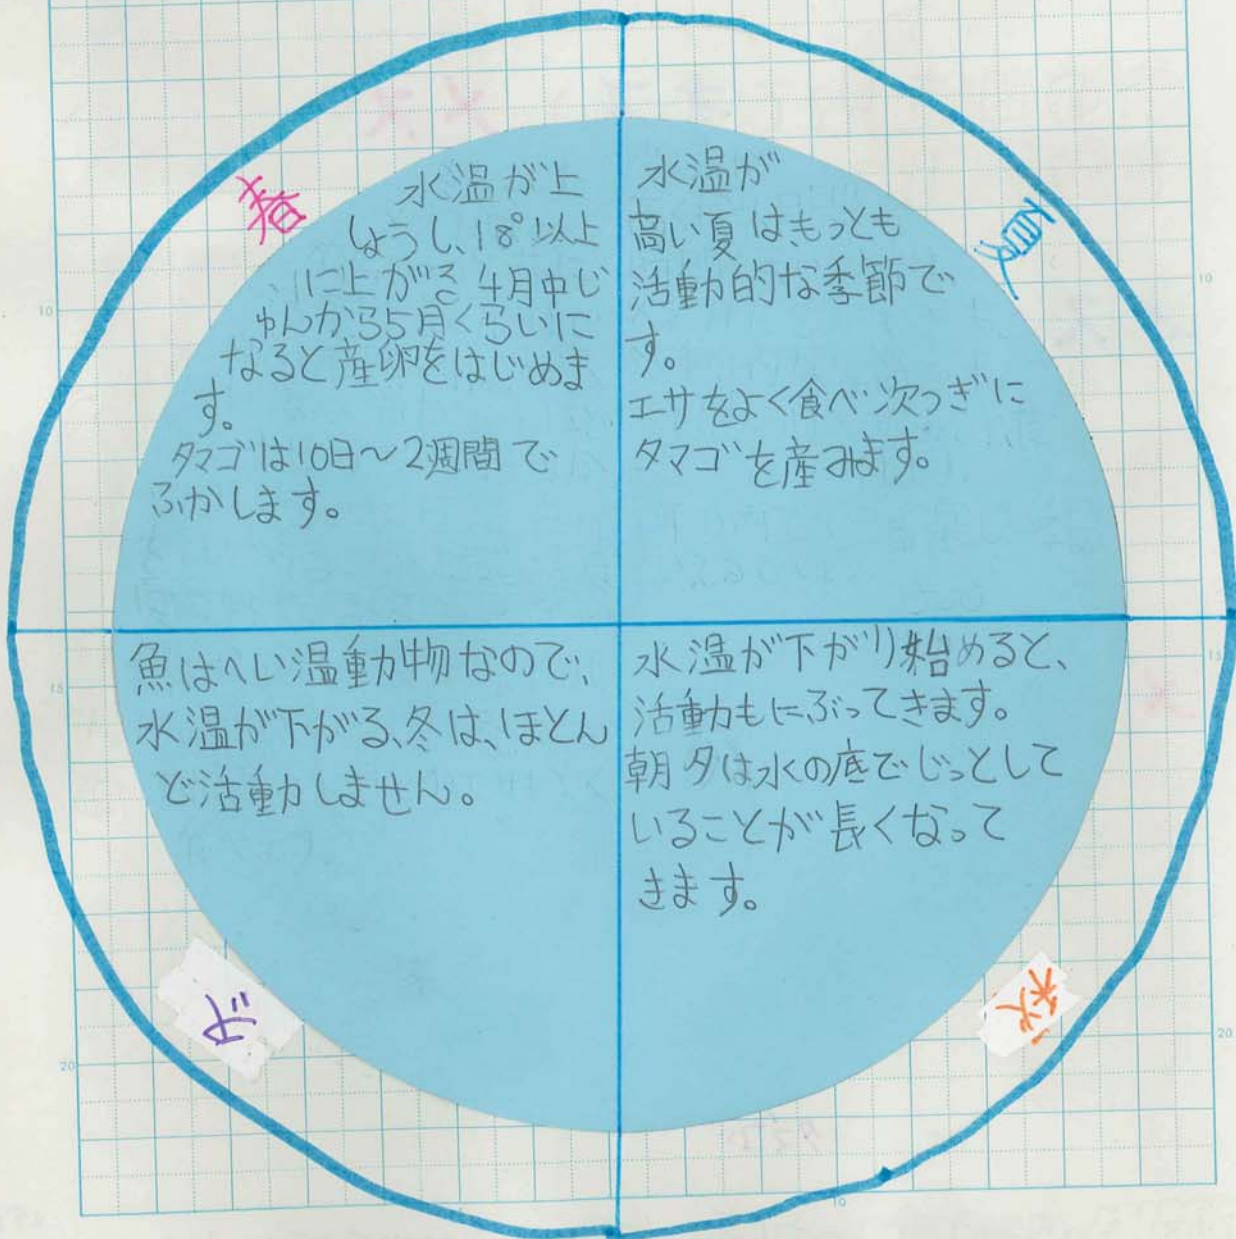 春
水温が上
しょうし、18°以上
に上がる4月中じ
ゅんから5月くらいに
なると産卵をはじめま
す。
タマゴは10日～2週間で
ふかします。
夏
水温が
高い夏はもっとも
活動的な季節で
す。
エサをよく食べ次つぎに
タマゴを産みます。
魚はへい温動物なので、
水温が下がる、冬は、ほとん
ど活動しません。
冬
水温が下がり始めると、
活動もにぶってきます。
朝夕は水の底でじっとして
いることが長くなって
きます。
秋
10
15
20
10
15
20
10